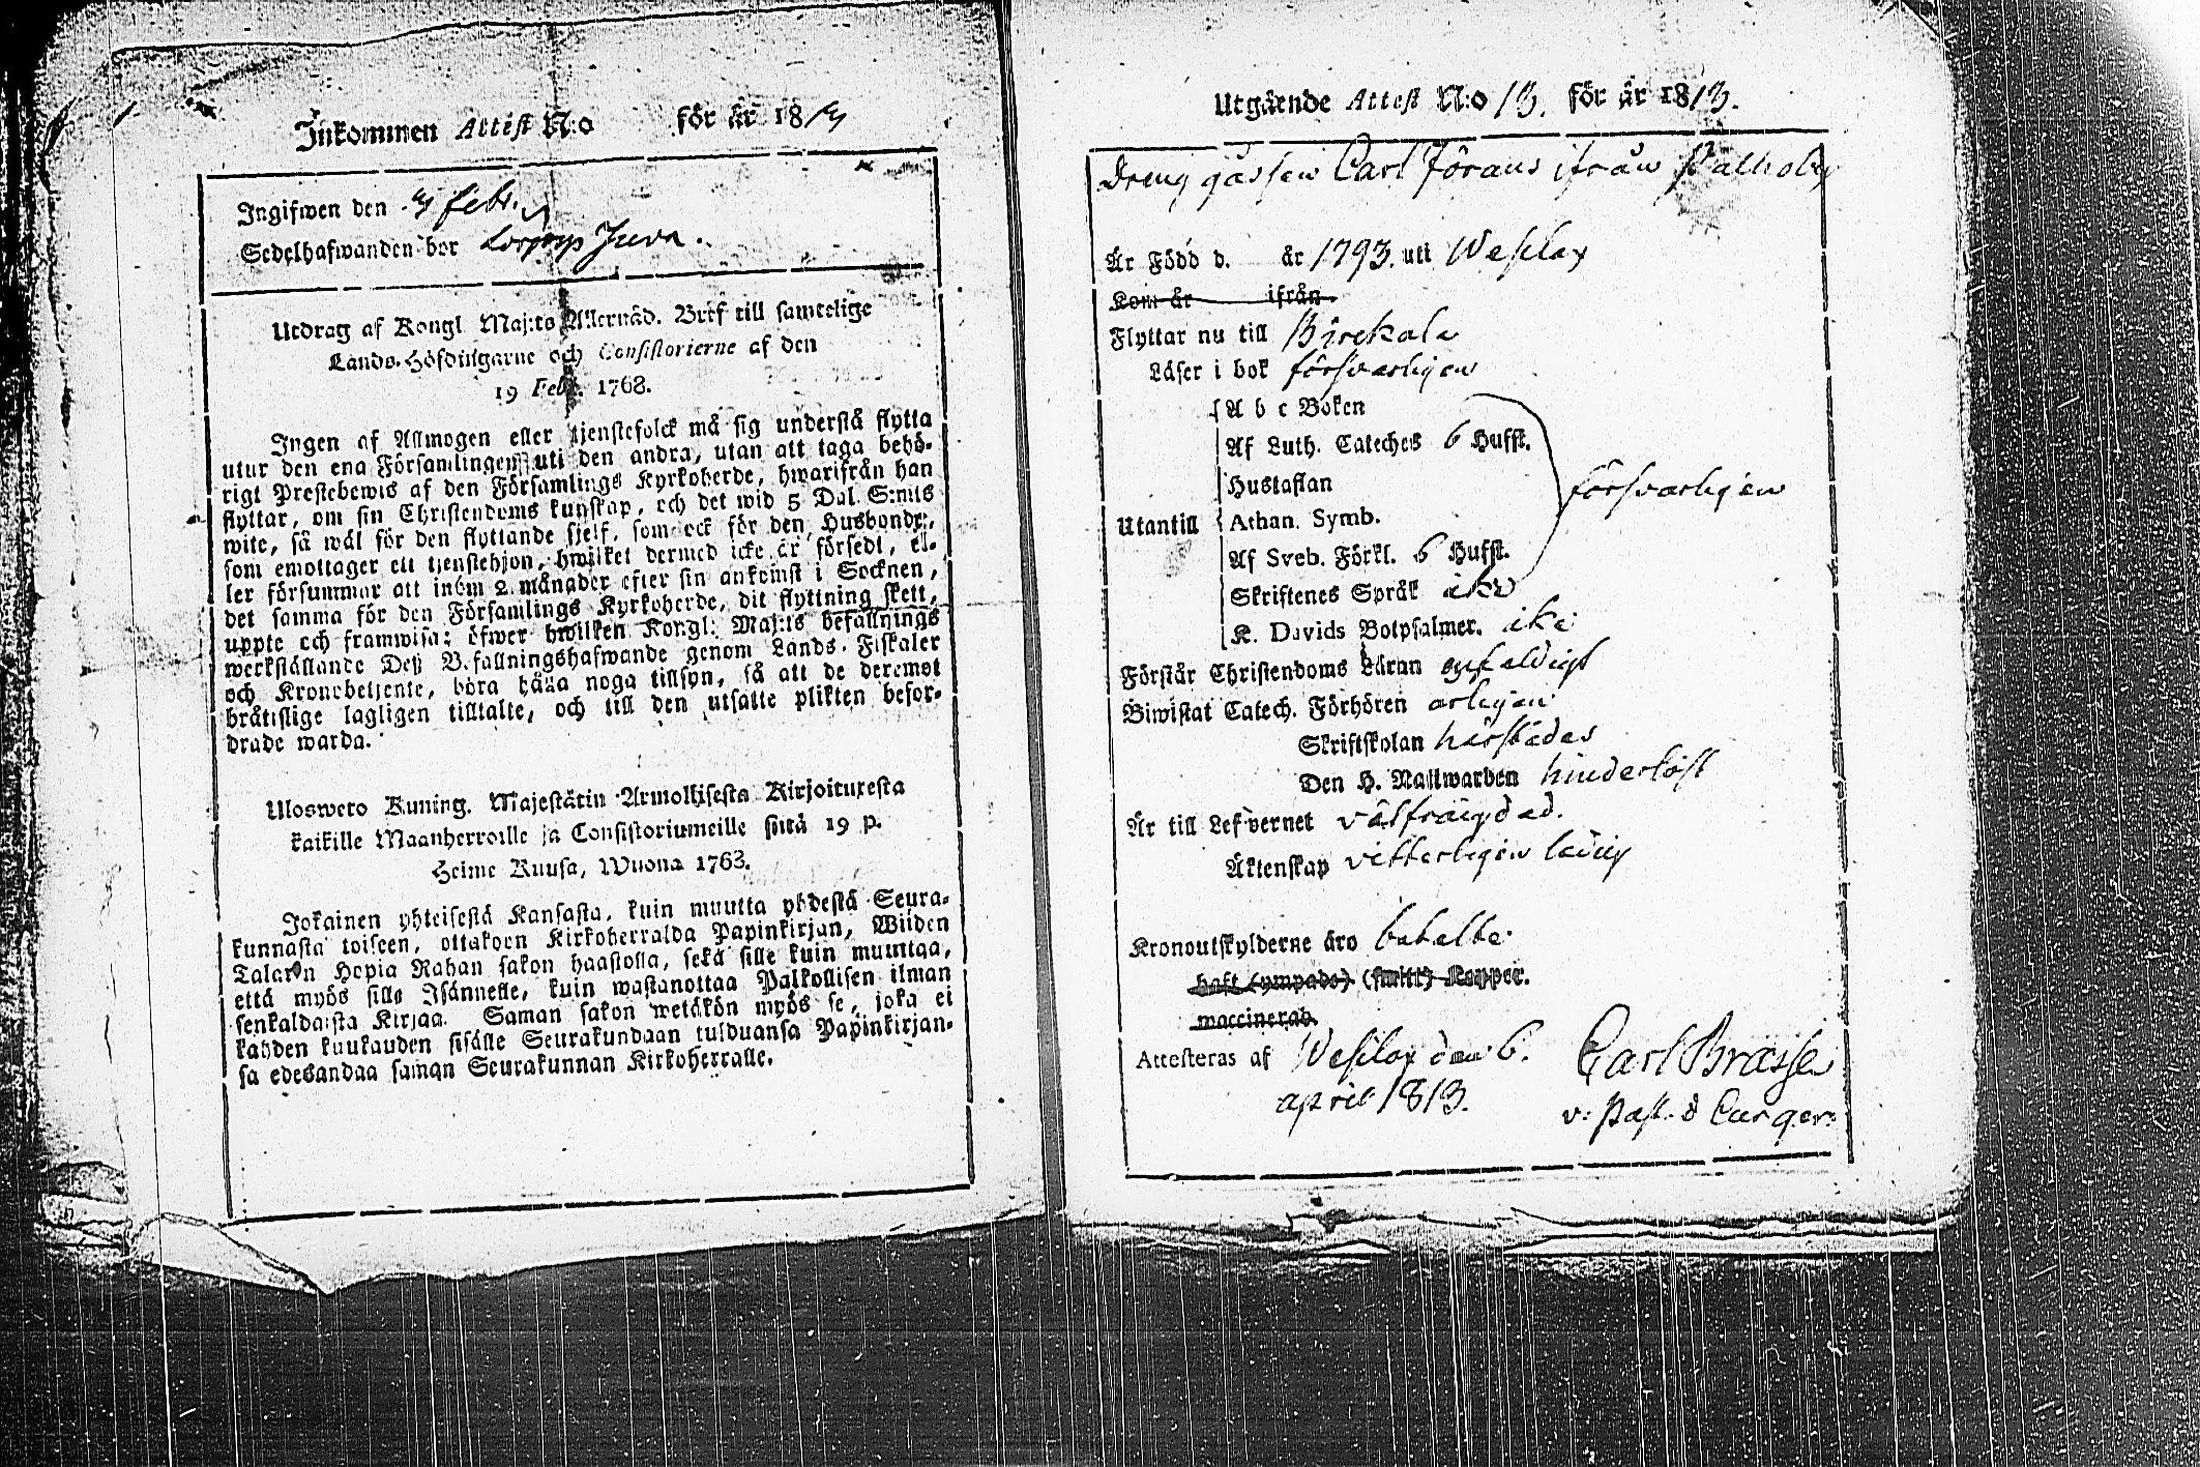 Inkommen Attest N:o för år 1814
Ingifwen den 4 febr.
Sedelhafwanden bor Juva.
Utdrag af Kongl. Maj:ts Allernåd. Bref till samtelige
Lands-Höfdingarne och Consistorierne af den
19 Febr. 1768.
Ingen af Allmogen eller tjenstefolck må sig understå flytta
utur den ena Församlingen uti den andra, utan att taga behö-
rigt Prestebewis af den Församlings Kyrkoherde, hwarifrån han
flyttar, om sin Christendoms kunskap, och det wid 5 Dal. S:mts
wite, så wäl för den flyttande sjelf, som ock för den Husbonde,
som emottager ett tjenstehjon, hwilket dermed icke är försedt, el-
ler försummar att inom 2 månader efter sin ankomst i Socknen,
det samma för den Församlings Kyrkoherde, dit flyttning skett,
uppte och framwisa; öfwer hwilken Kongl. Maj:ts befallnings
werkställande Deß B.fallningshafwande genom Lands-Fiskaler
och Kronobetjente, böra hålla noga tillsyn, så att de deremot
bråtislige lagligen tilltalte, och till den utsatte plikten befor-
drade warda.
Uloswero Kuning. Majestätin Armollisesta Kirjoituxesta
kaikille Maanherroille ja Consistoriumeille siitä 19 p.
Helme Kuusa, Wuona 1763.
Jokainen yhteisestä Kansasta, kuin muutta yhdestä Seura-
kunnasta toiseen, ottakoen Kirkoherralda Papinkirjan, Wiiden
Talarin Hopia Rahan sakon haastolla, sekä sille kuin muuttaa,
että myös sille Isännelle, kuin wastanottaa Palkollisen ilman
senkaldaista Kirjaa. Saman sakon wetäkön myös se, joka ei
kahden kuukauden sisälle Seurakundaan tulduansa Papinkirjan-
sa edesandaa saman Seurakunnan Kirkoherralle.
Utgående Attest N:o 13. för år 1813.
Dreng gåssen Carl Jörans ifrån
Är Född d. år 1793. uti Wesilax
Kom år ifrån
Flyttar nu till Birckala
Läser i bok försvarligen
A b c Boken
Af Luth. Cateches 6 Hufst.
Hustaflan
försvarligen
Utantill Athan. Symb.
Af Sveb. Förkl. 6 Hufst.
Skriftenes Språk ike
K. Davids Botpsalmer. ike
Förstår Christendoms Läran enfaldigt
Biwistat Catech. Förhören årligen
Skriftskolan härstädes
Den H. Nattwarden hinderlöst
Är till Lefvernet välfrägdad.
Äktenskap vitterligen ledig
Kronoutskylderne äro betalte.
haft (ympade) (smitt) Kopper.
waccinerad
Attesteras af Wesilax den 6. Carl Brasse
april 1813. v: Past.